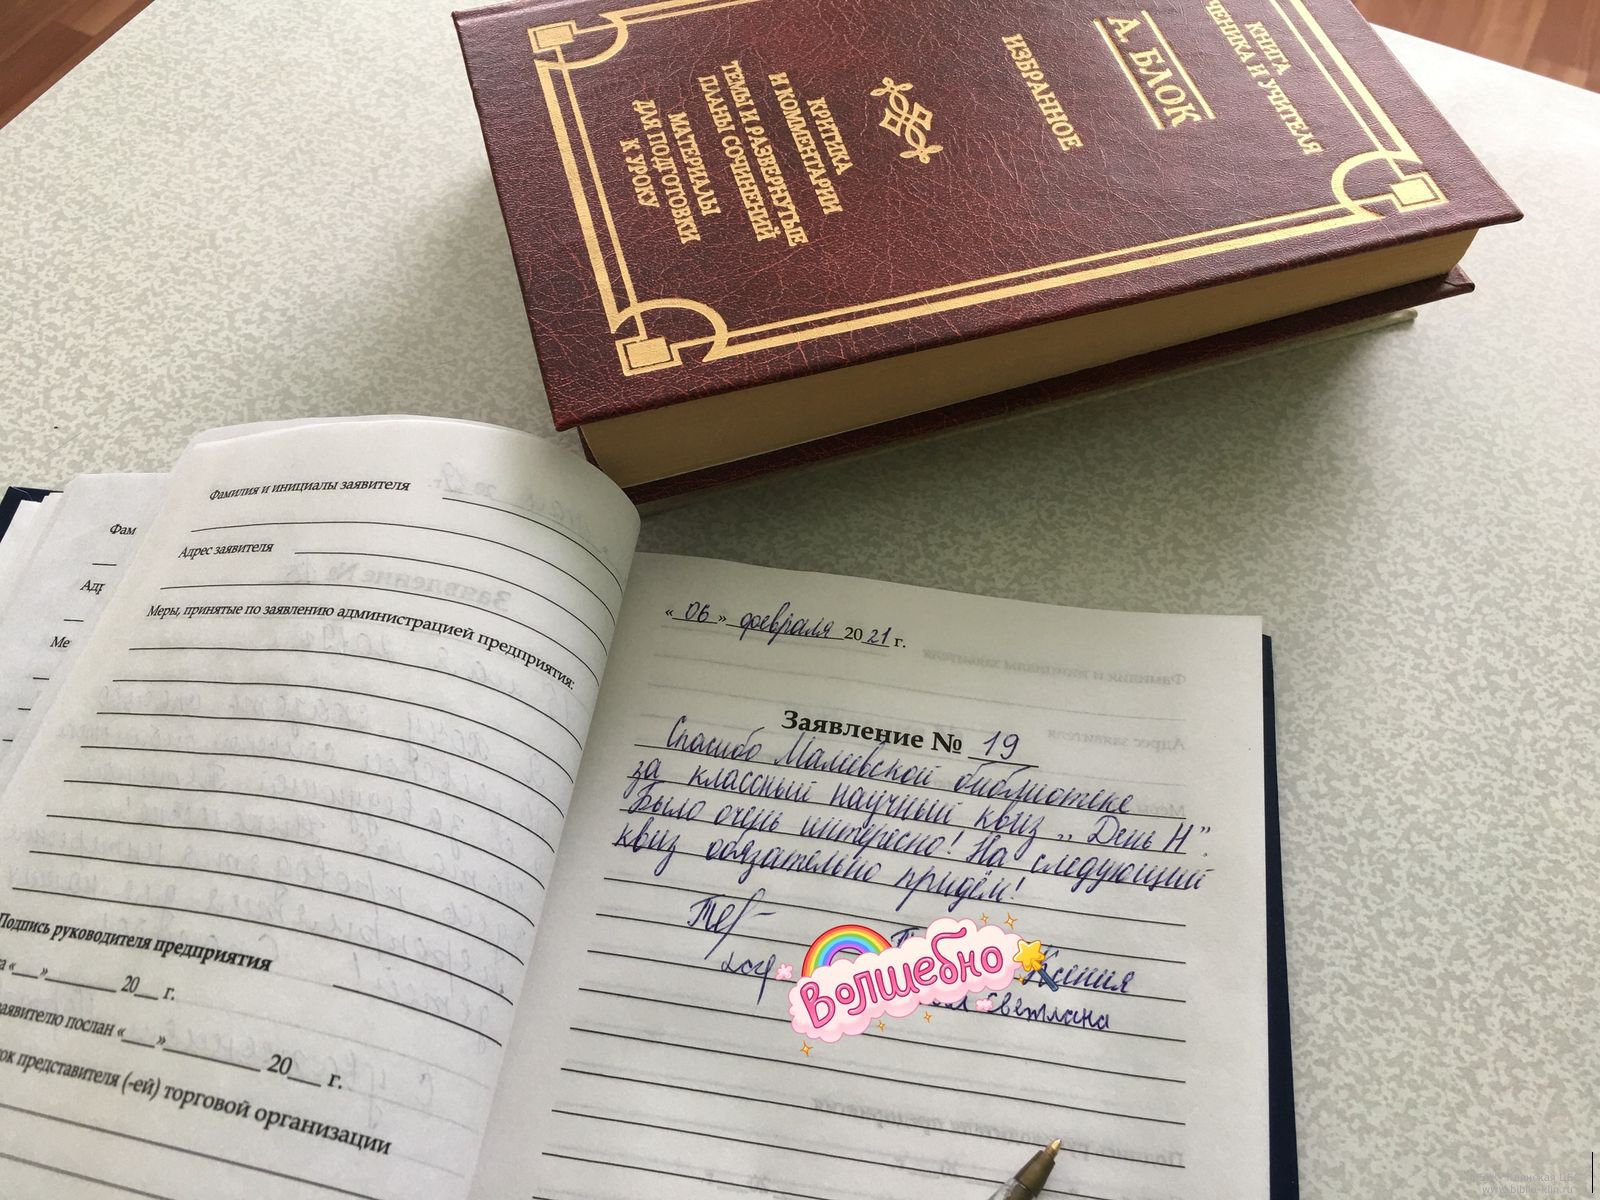 КНИГА
УЧЕНИКА И УЧИТЕЛЯ
А. БЛОК
ИЗБРАННОЕ
КРИТИКА
И КОММЕНТАРИИ
ТЕМЫ И РАЗВЕРНУТЫЕ
ПЛАНЫ СОЧИНЕНИЙ
МАТЕРИАЛЫ
ДЛЯ ПОДГОТОВКИ
К УРОКУ
Фам
Адр
Ме
Фамилия и инициалы заявителя
Адрес заявителя
Меры, принятые по заявлению администрацией предприятия:
Подпись руководителя предприятия
« » 20 г.
заявителю послан « » 20 г.
представителя (-ей) торговой организации
« 06 » февраля 20 21 г.
Заявление № 19
Спасибо Малеевской библиотеке
за классный научный квиз „День Н".
Было очень интересно! На следующий
квиз обязательно придём!
Ксения
Светлана
Волшебно